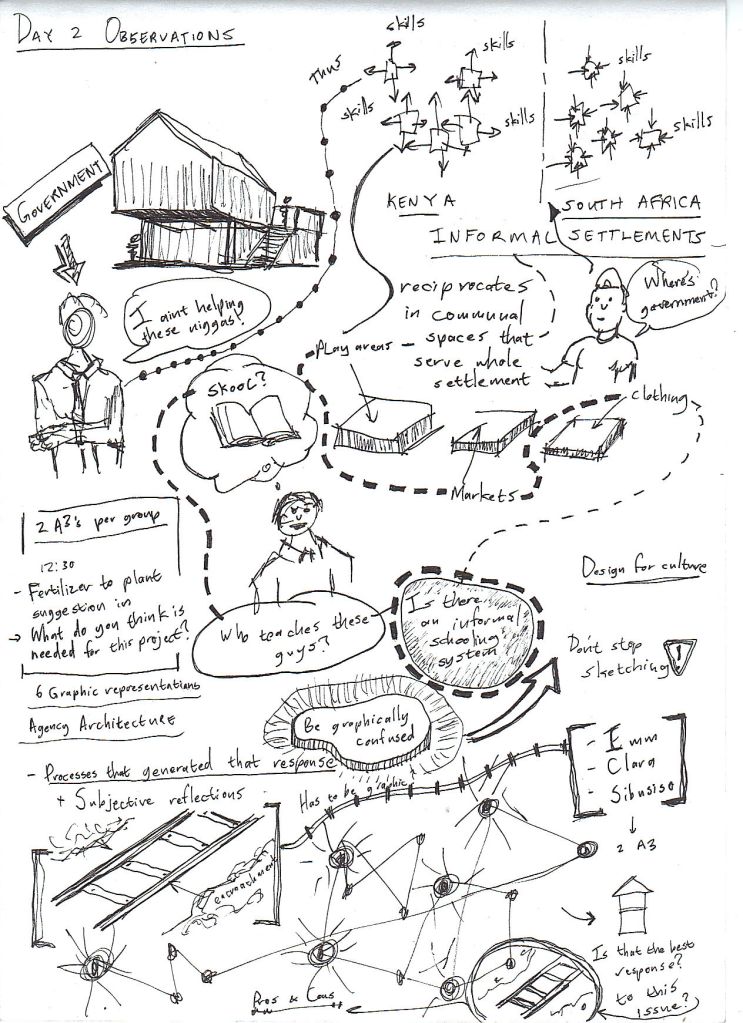 DAY 2 OBSERVATIONS
Thus
skills
skills
skills
skills
skills
skills
KENYA
SOUTH AFRICA
INFORMAL SETTLEMENTS
GOVERNMENT
I aint helping
these niggas!
reciprocates
in communal
spaces that
serve whole
settlement
Where's
government?
Play areas
SKOOL?
Clothing
Markets
2 A3's per group
12:30
- Fertilizer to plant
suggestion in
→ What do you think is
needed for this project?
6 Graphic representations
Agency Architecture
Who teaches these
guys?
Is there
an informal
schooling
system
Design for culture
Don't stop
sketching
!
Be graphically
confused
- Processes that generated that response
+ Subjective reflections
Has to be graphic
- Emm
- Clara
- Sibusiso
2 A3
encroachment
Is that the best
response?
to this
issue?
Pros & Cons